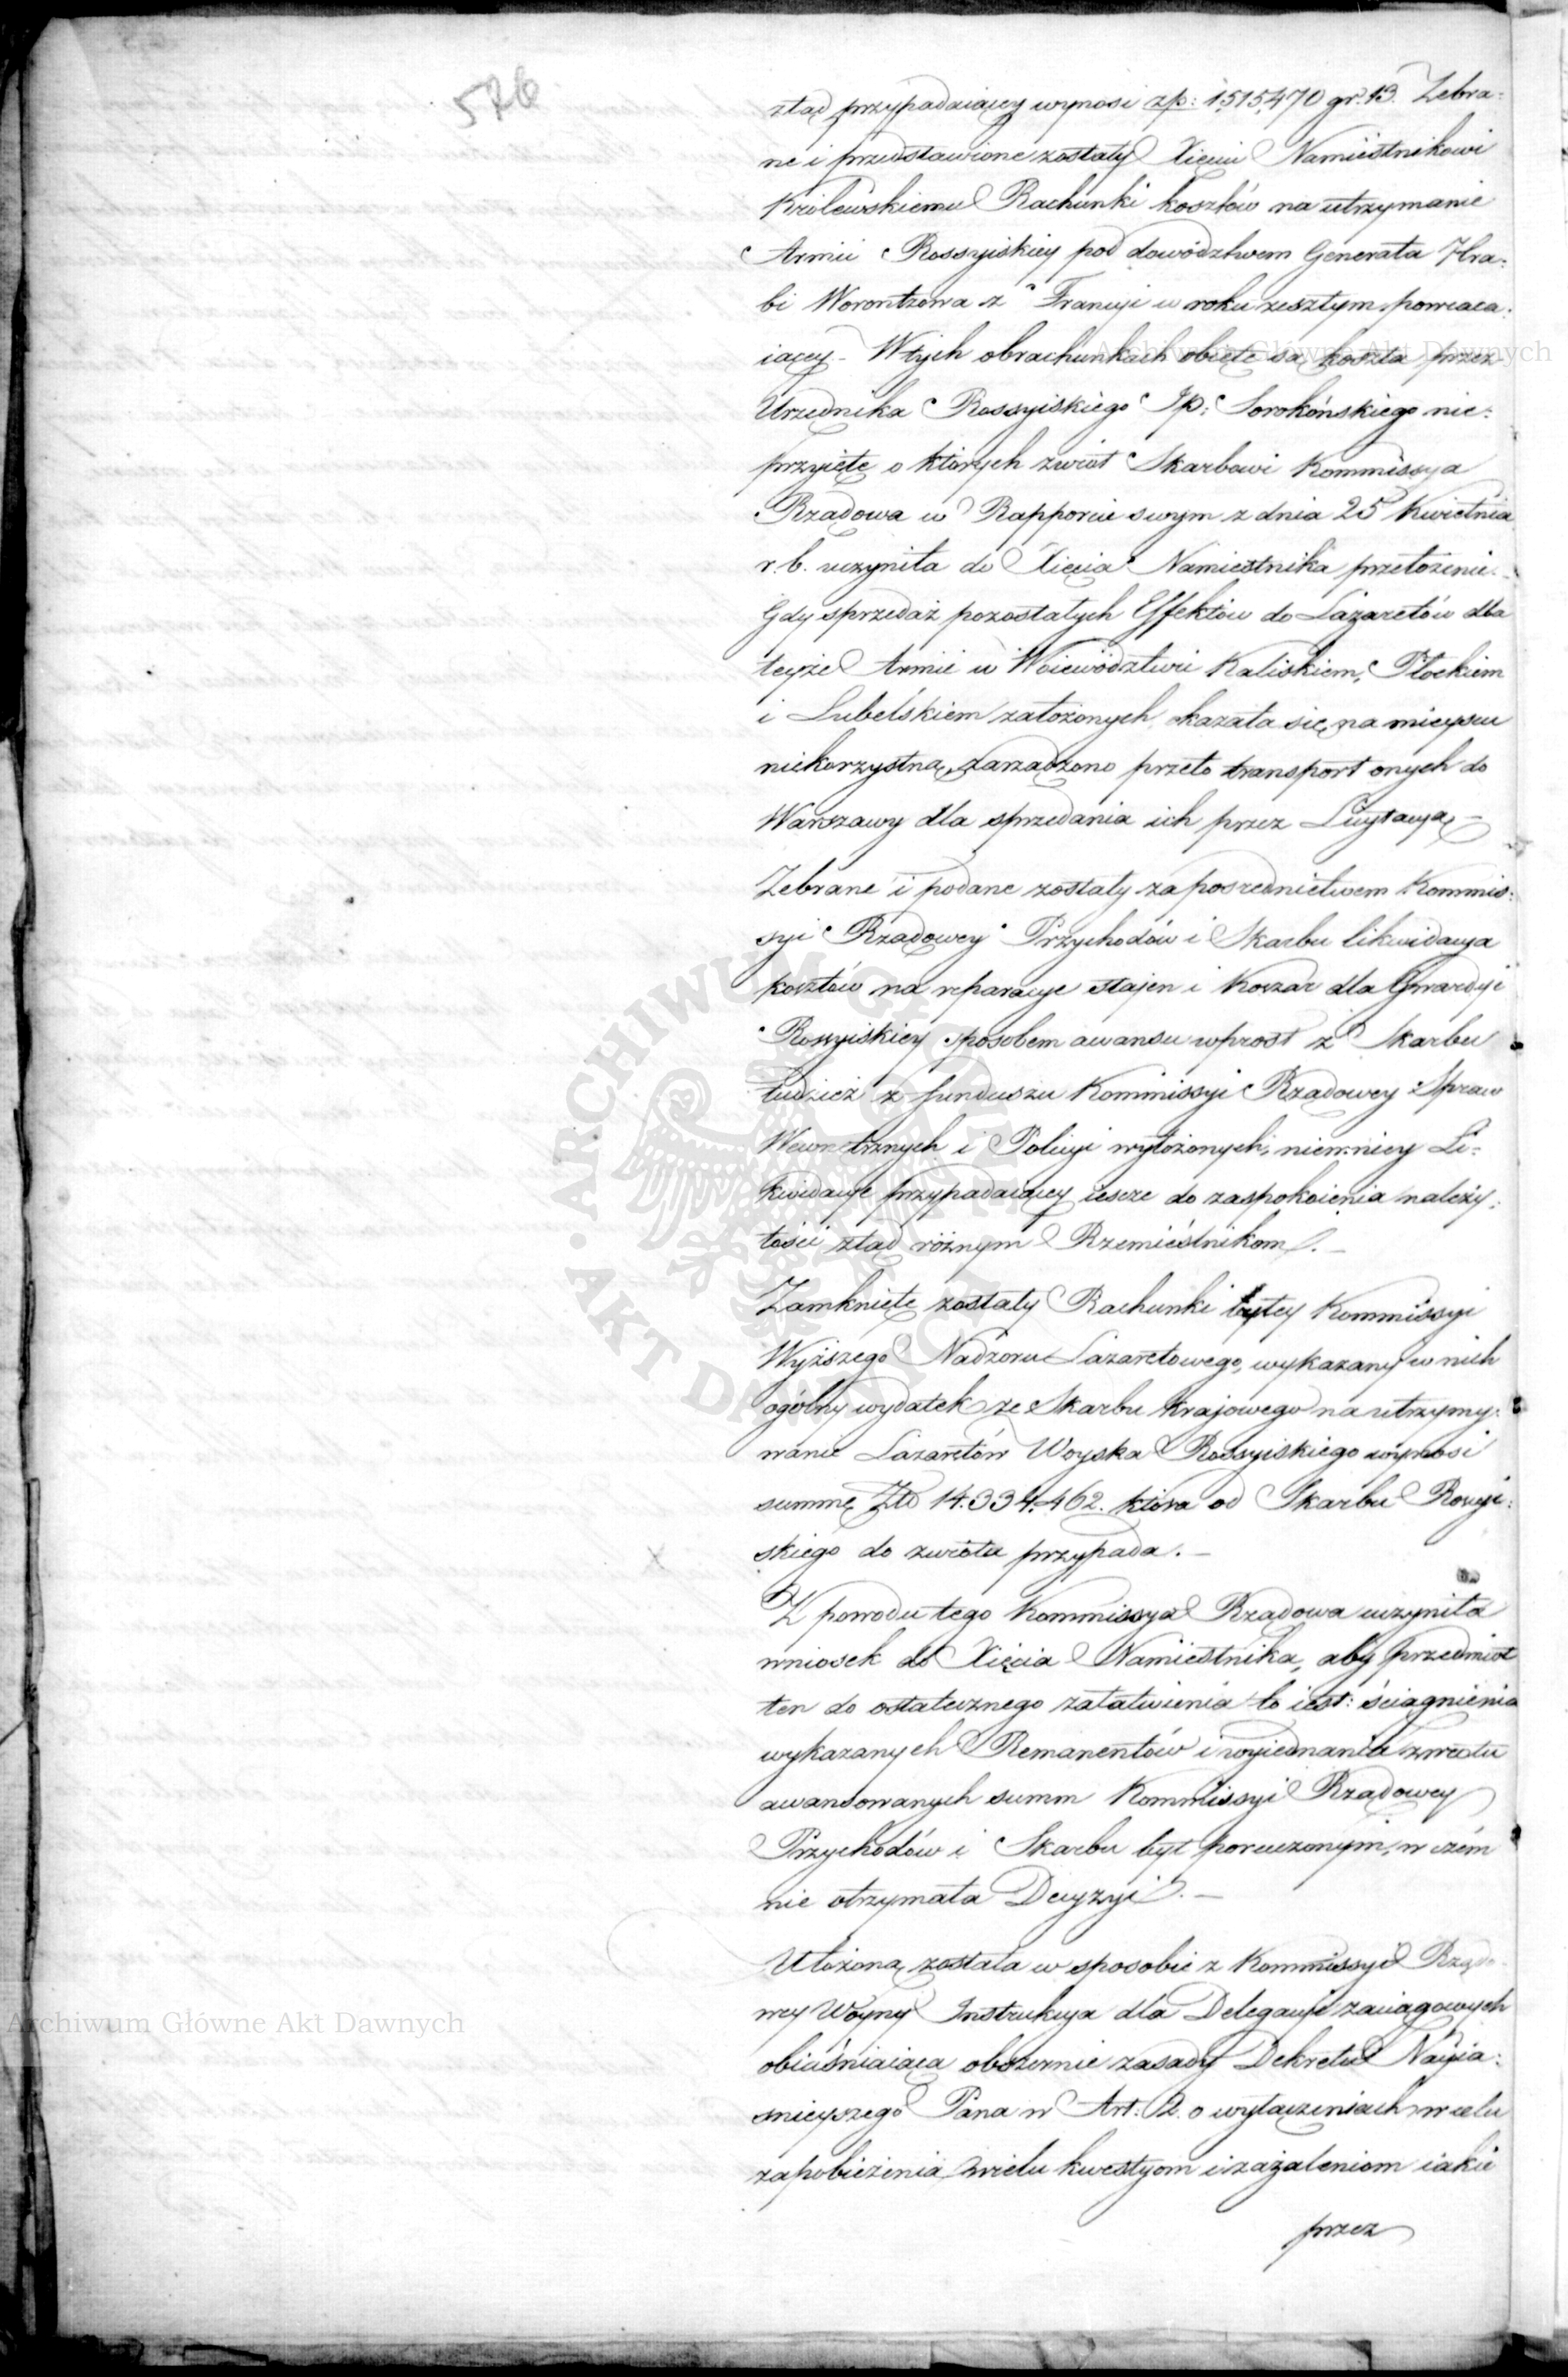 576
ztąd przypadaiący wynosi zp: 1,515,470 gr. 13. Zebra:
ne i przedstawione zostały Xięciu Namiestnikowi
Królewskiemu Rachunki kosztów na utrzymanie
Armii Rossyiskiey pod dowództwem Generała Hra:
bi Worontzowa z Francyi w roku zeszłym powraca:
iącey - W tych obrachunkach obięte są koszta przez
Urzędnika Rossyiskiego Jp: Sorokońskiego nie:
przyięte o których zwrot Skarbowi Kommissya
Rządowa w Rapporcie swym z dnia 25 Kwietnia
r. b. uczyniła do Xięcia Namiestnika przełożenie. -
Gdy sprzedaż pozostałych Effektów do Lazaretów dla
teyże Armii w Woiewództwie Kaliskiem, Płockiem
i Lubelskiem założonych okazała się na mieyscu
niekorzystną, zarządzono przeto transport onych do
Warszawy dla sprzedania ich przez Licytacyą -
Zebrane i podane zostały za posrednictwem Kommis:
syi Rządowey Przychodów i Skarbu likwidacya
kosztów na reparacye stajen i Koszar dla Gwardyi
Rossyiskiey sposobem awansu wprost z Skarbu
tudzież z funduszu Kommissyi Rządowey Spraw
Wewnętrznych i Policyi wyłożonych, niemniey Li:
kwidacye przypadaiącey ieszcze do zaspokoienia należy:
tości ztąd różnym Rzemieślnikom. -
Zamknięte zostały Rachunki byłey Kommissyi
Wyższego Nadzoru Lazaretowego, wykazany w nich
ogólny wydatek ze Skarbu Krajowego na utrzymy:
wanie Lazaretów Woyska Rossyiskiego wynosi
summę Złł 14.334.462. która od Skarbu Rossyi:
skiego do zwrotu przypada. -
Z powodu tego Kommissya Rządowa uczyniła
wniosek do Xięcia Namiestnika, aby przedmiot
ten do ostatecznego załatwienia to iest: ściągnienia
wykazanych Remanentów i wyiednania zwrotu
awansowanych summ Kommissyi Rządowey
Przychodów i Skarbu był poruczonym, w czém
nie otrzymała Decyzyi. -
Ułożoną została w sposobie z Kommissyi Rządo:
wey Woyny Instrukcya dla Delegacyi zaciągowych
obiaśniaiąca obszernie zasady Dekretu Nayia:
śnieyszego Pana w Art: 2. o wyłączeniach w celu
zapobieżenia wielu kwestyom i zażaleniom iakie
przez
Archiwum Główne Akt Dawnych
Archiwum Główne Akt Dawnych
ARCHIWUM GŁÓWNE AKT DAWNYCH